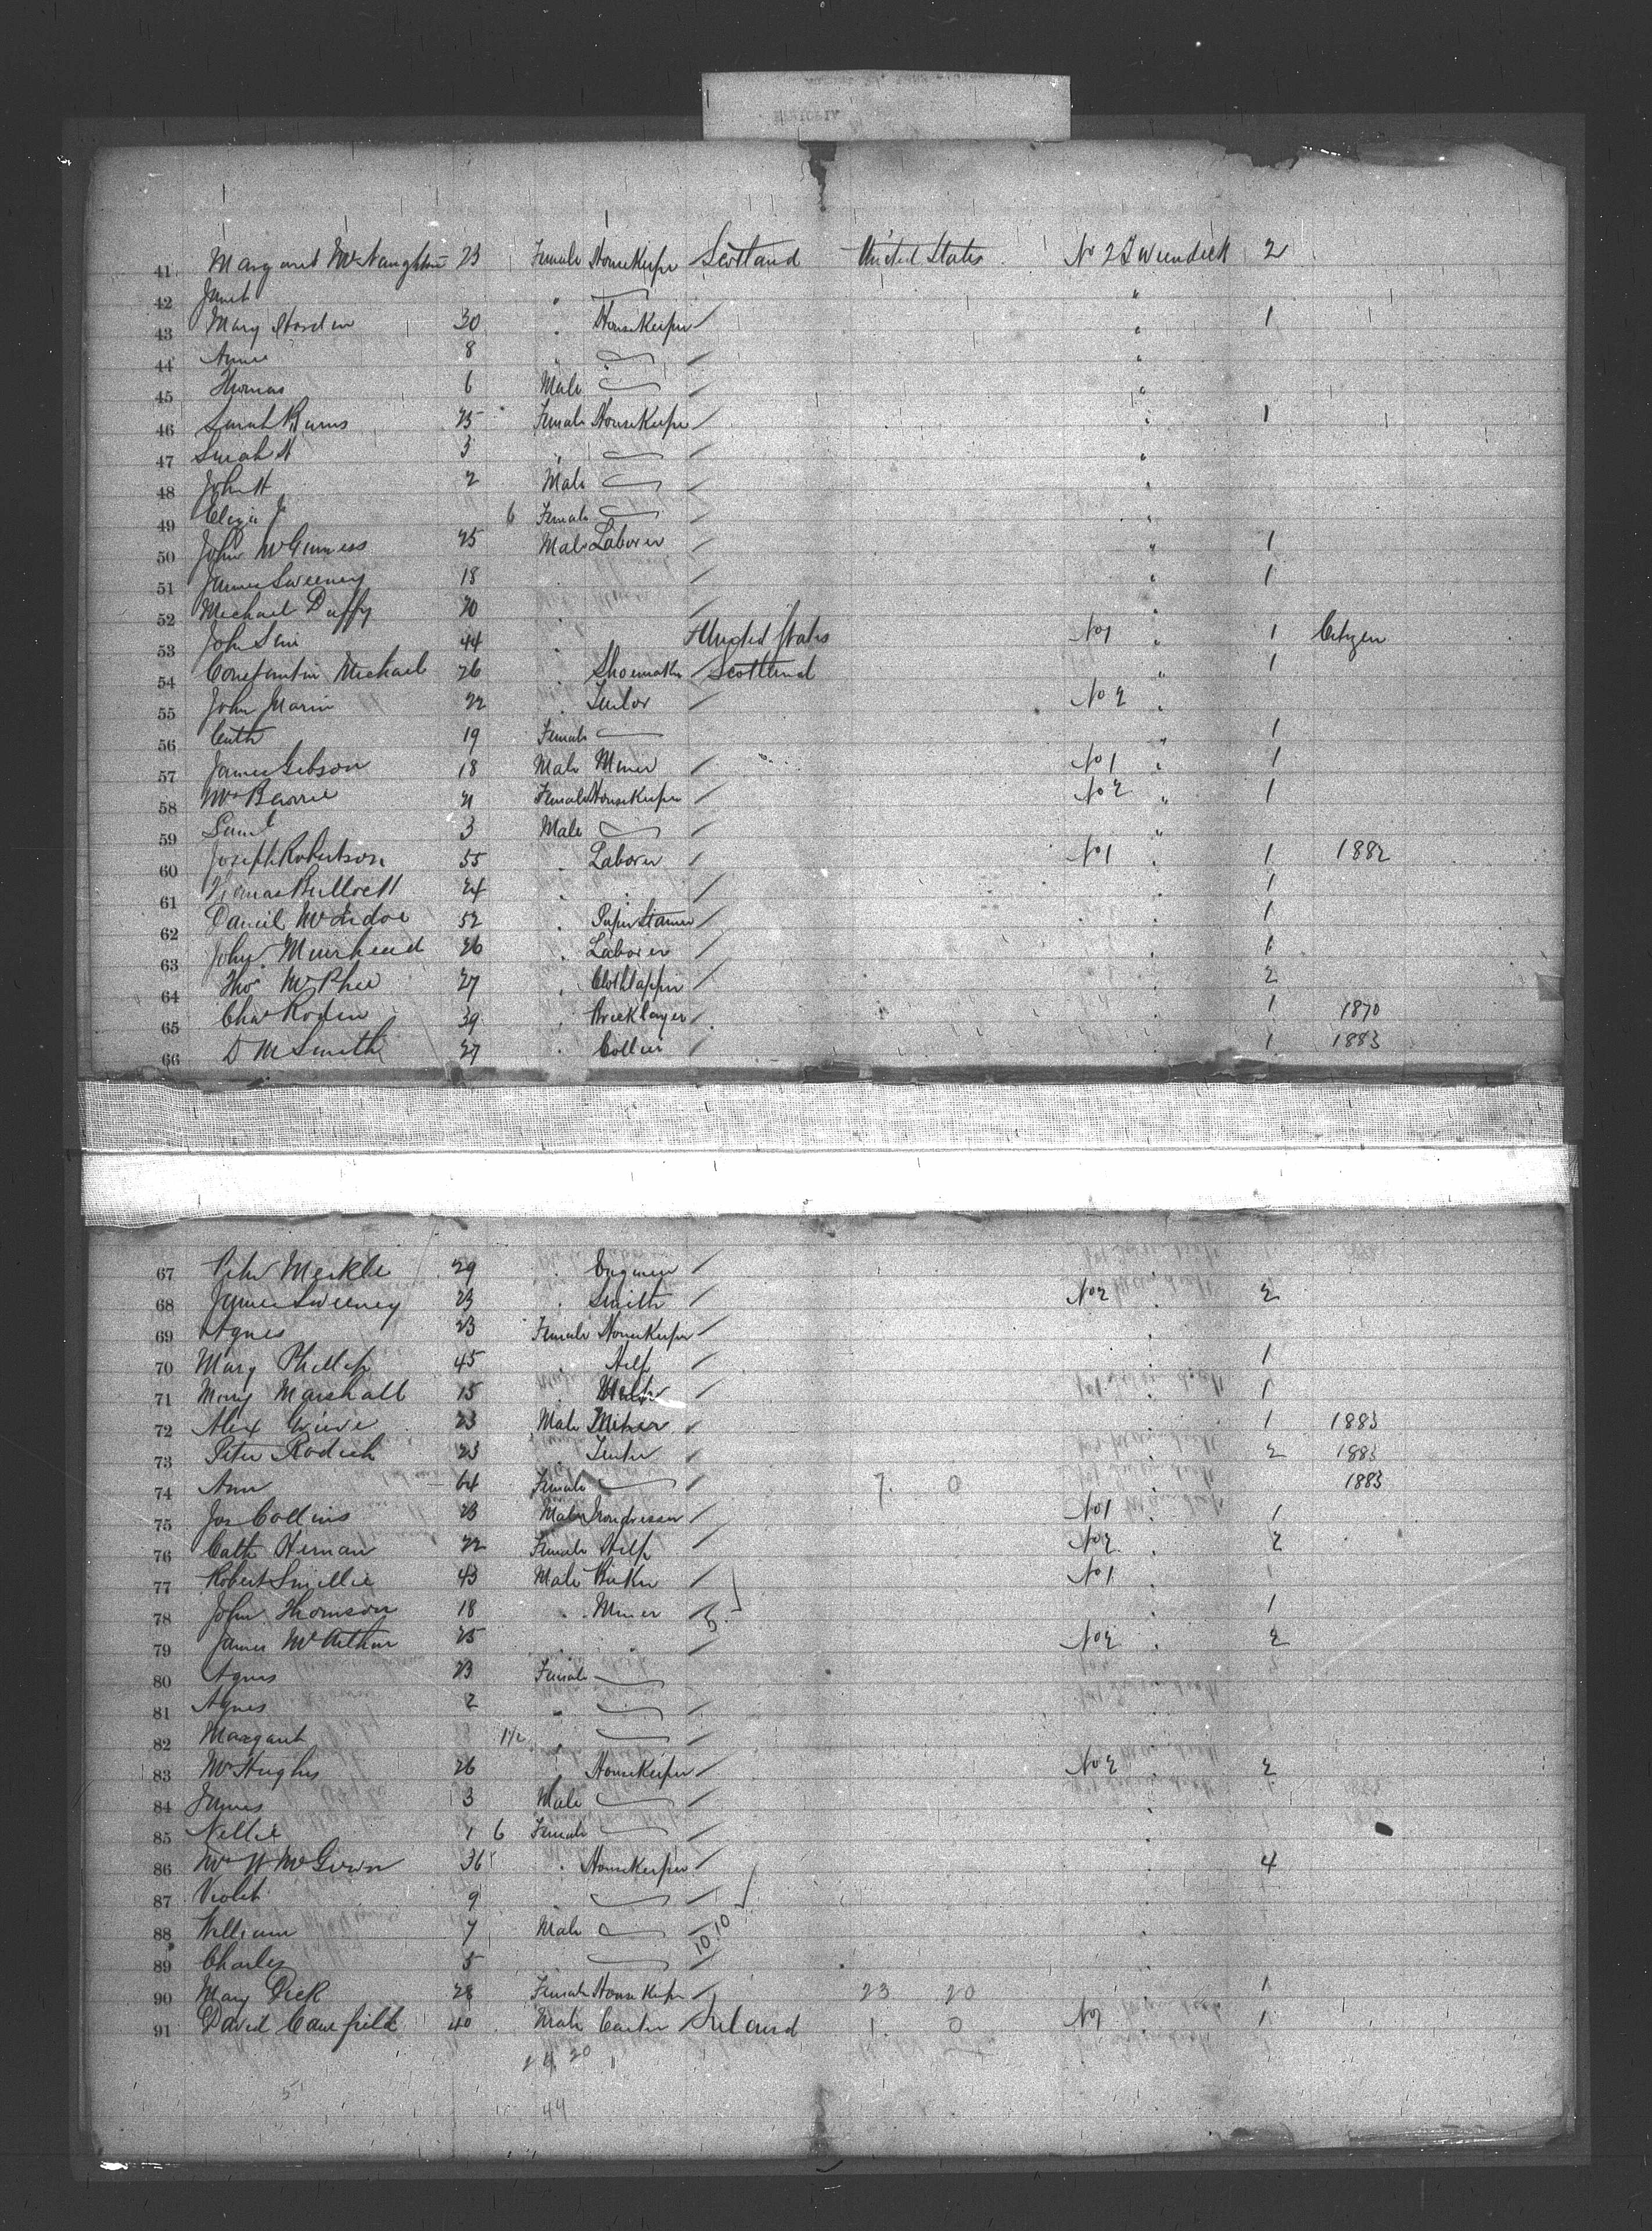 41 Margaret McNaughton 23 Female Housekeeper Scotland United States No 2 Tweendeck 2
42 Janet " "
43 Mary Harden 30 " Housekeeper / " 1
44 Annie 8 " / "
45 Thomas 6 Male / "
46 Sarah Burns 25 Female Housekeeper / " 1
47 Sarah H 3 " / "
48 John H 2 Male / "
49 Eliza J 6 Female "
50 John McGinness 25 Male Laborer / " 1
51 James Sweeney 18 " / " 1
52 Michael Duffy 20 " / "
53 John 44 " United States No 1 " 1 Citizen
54 Constantin Michael 26 " Shoemaker Scotland " 1
55 John Marin 22 " / No 2 "
56 Cath 19 Female " 1
57 James Gibson 18 Male Miner / No 1 " 1
58 Mrs Barrie 21 Female Housekeeper / No 2 " 1
59 Saml 3 Male / "
60 Joseph Robertson 55 " Laborer / No 1 " 1 1882
61 Thomas Bullock 24 " / " 1
62 Daniel McIndoe 52 " Paperstainer / " 1
63 John Muirhead 26 " Laborer / " 1
64 Thos McPhee 27 " Clothlapper / " 2
65 Chas Roden 39 " Bricklayer / " 1 1870
66 D M Smith 27 " Collier / " 1 1883
67 Peter Meikle 29 " Engineer /
68 James Sweeney 23 " Smith / No 2 " 2
69 Agnes 23 Female Housekeeper / "
70 Mary Phillip 45 " Help / " 1
71 Mary Marshall 15 " Help / " 1
72 Alex Grieve 23 Male Miner / " 1 1883
73 Peter Rodick 23 " / " 2 1883
74 Ann 64 Female / 7 0 " 1883
75 Jas Collins 23 Male Irondresser / No 1 " 1
76 Cath Hernan 22 Female Help / No 2 " 2
77 Robert Smellie 43 Male Baker / No 1 " 1
78 John Thomson 18 " Miner / 5 " 1
79 James McArthur 25 " " / No 2 " 2
80 Agnes 23 Female
81 Agnes 2 " /
82 Margaret 1½ " /
83 Mrs Hughes 26 " Housekeeper / No 2 " 2
84 James 3 Male / "
85 Nellie 1 6 Female / "
86 Mrs W McGivern 36 " Housekeeper / " 4
87 Violet 9 " / "
88 William 7 Male / 10.10 "
89 Charles 5 / "
90 Mary Dick 28 Female Housekeeper / 23 20 " 1
91 David Caulfield 40 Male Carter Ireland 1 0 No 1 " 1
24 20
5
44